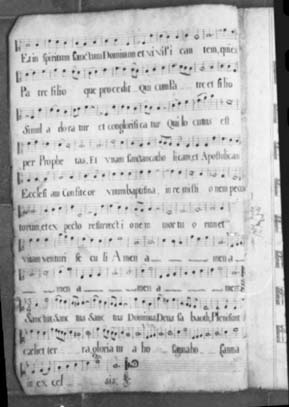 Et in spiritum sanctum Dominum et vivifi can tem, qui ex
Pa tre filio que procedit Qui cum Pa tre et filio
Simul a dora tur et conglorifica tur Qui locutus est
per Prophe tas, Et unam sanctam catho licam, et Apostolicam
Ecclesi am Confiteor unum baptisma, in re missi o nem pecca
torum, et ex pecto resurrecti o nem mortu o rum et
vitam venturi se cu li A men a men a
men a men a men
Sanctus, Sanc tus Sanc tus Dominus, Deus sa baoth, Pleni sunt
cœli et ter ra, gloria tu a ho sanna ho sanna
in ex cel sis